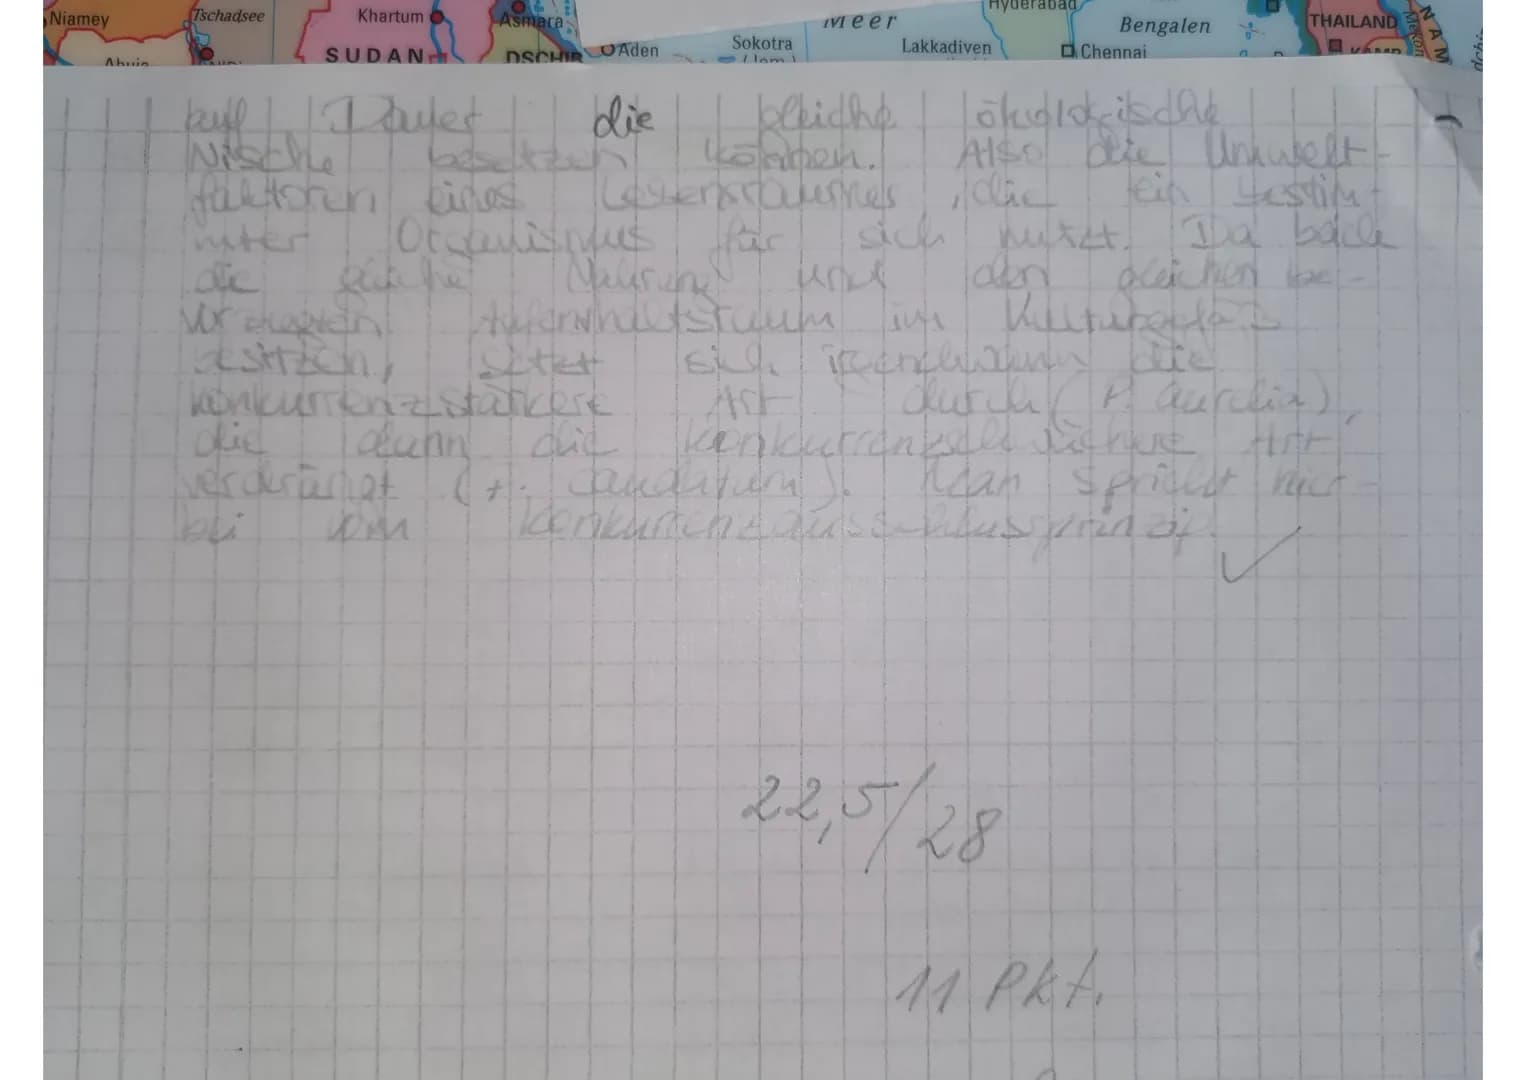 Niamey
Tschadsee
Khartum
Asmara
Meer
Hyderabad
Bengalen
THAILAND
Abuja
SUDAN
DSCHIB
Aden
Sokotra
Lakkadiven
Chennai
Mekon
NAM
auf Dauer die gleiche ökologische
Nische besetzen können. Also die Umwelt-
faktoren eines Lebensraumes, die ein bestim-
mter Organismus für sich nutzt. Da beide
die gleiche Nahrung und den gleichen be-
vorzugten Aufenthaltsraum im Kulturgefäß
besitzen, setzt sich irgendwann die
konkurrenzstärkere Art durch (P. aurelia),
die dann die konkurrenzschwächere Art
verdrängt (P. caudatum). Man spricht hier-
bei vom Konkurrenzausschlussprinzip.
22,5/28
11 Pkt.